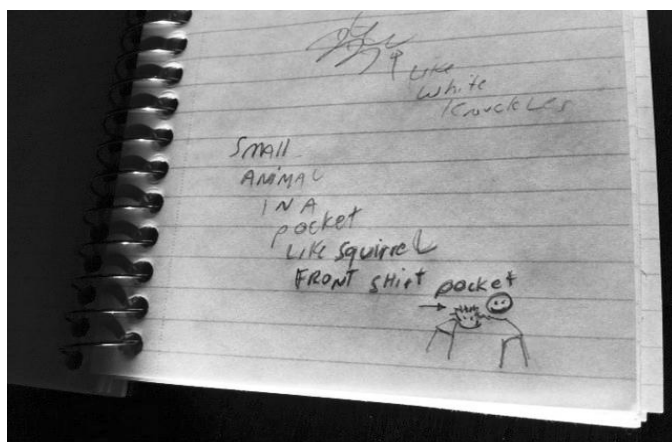 Like
White
Knuckles
Small
ANIMAL
IN A
pocket
Like squirrel
FRONT SHirt pocket